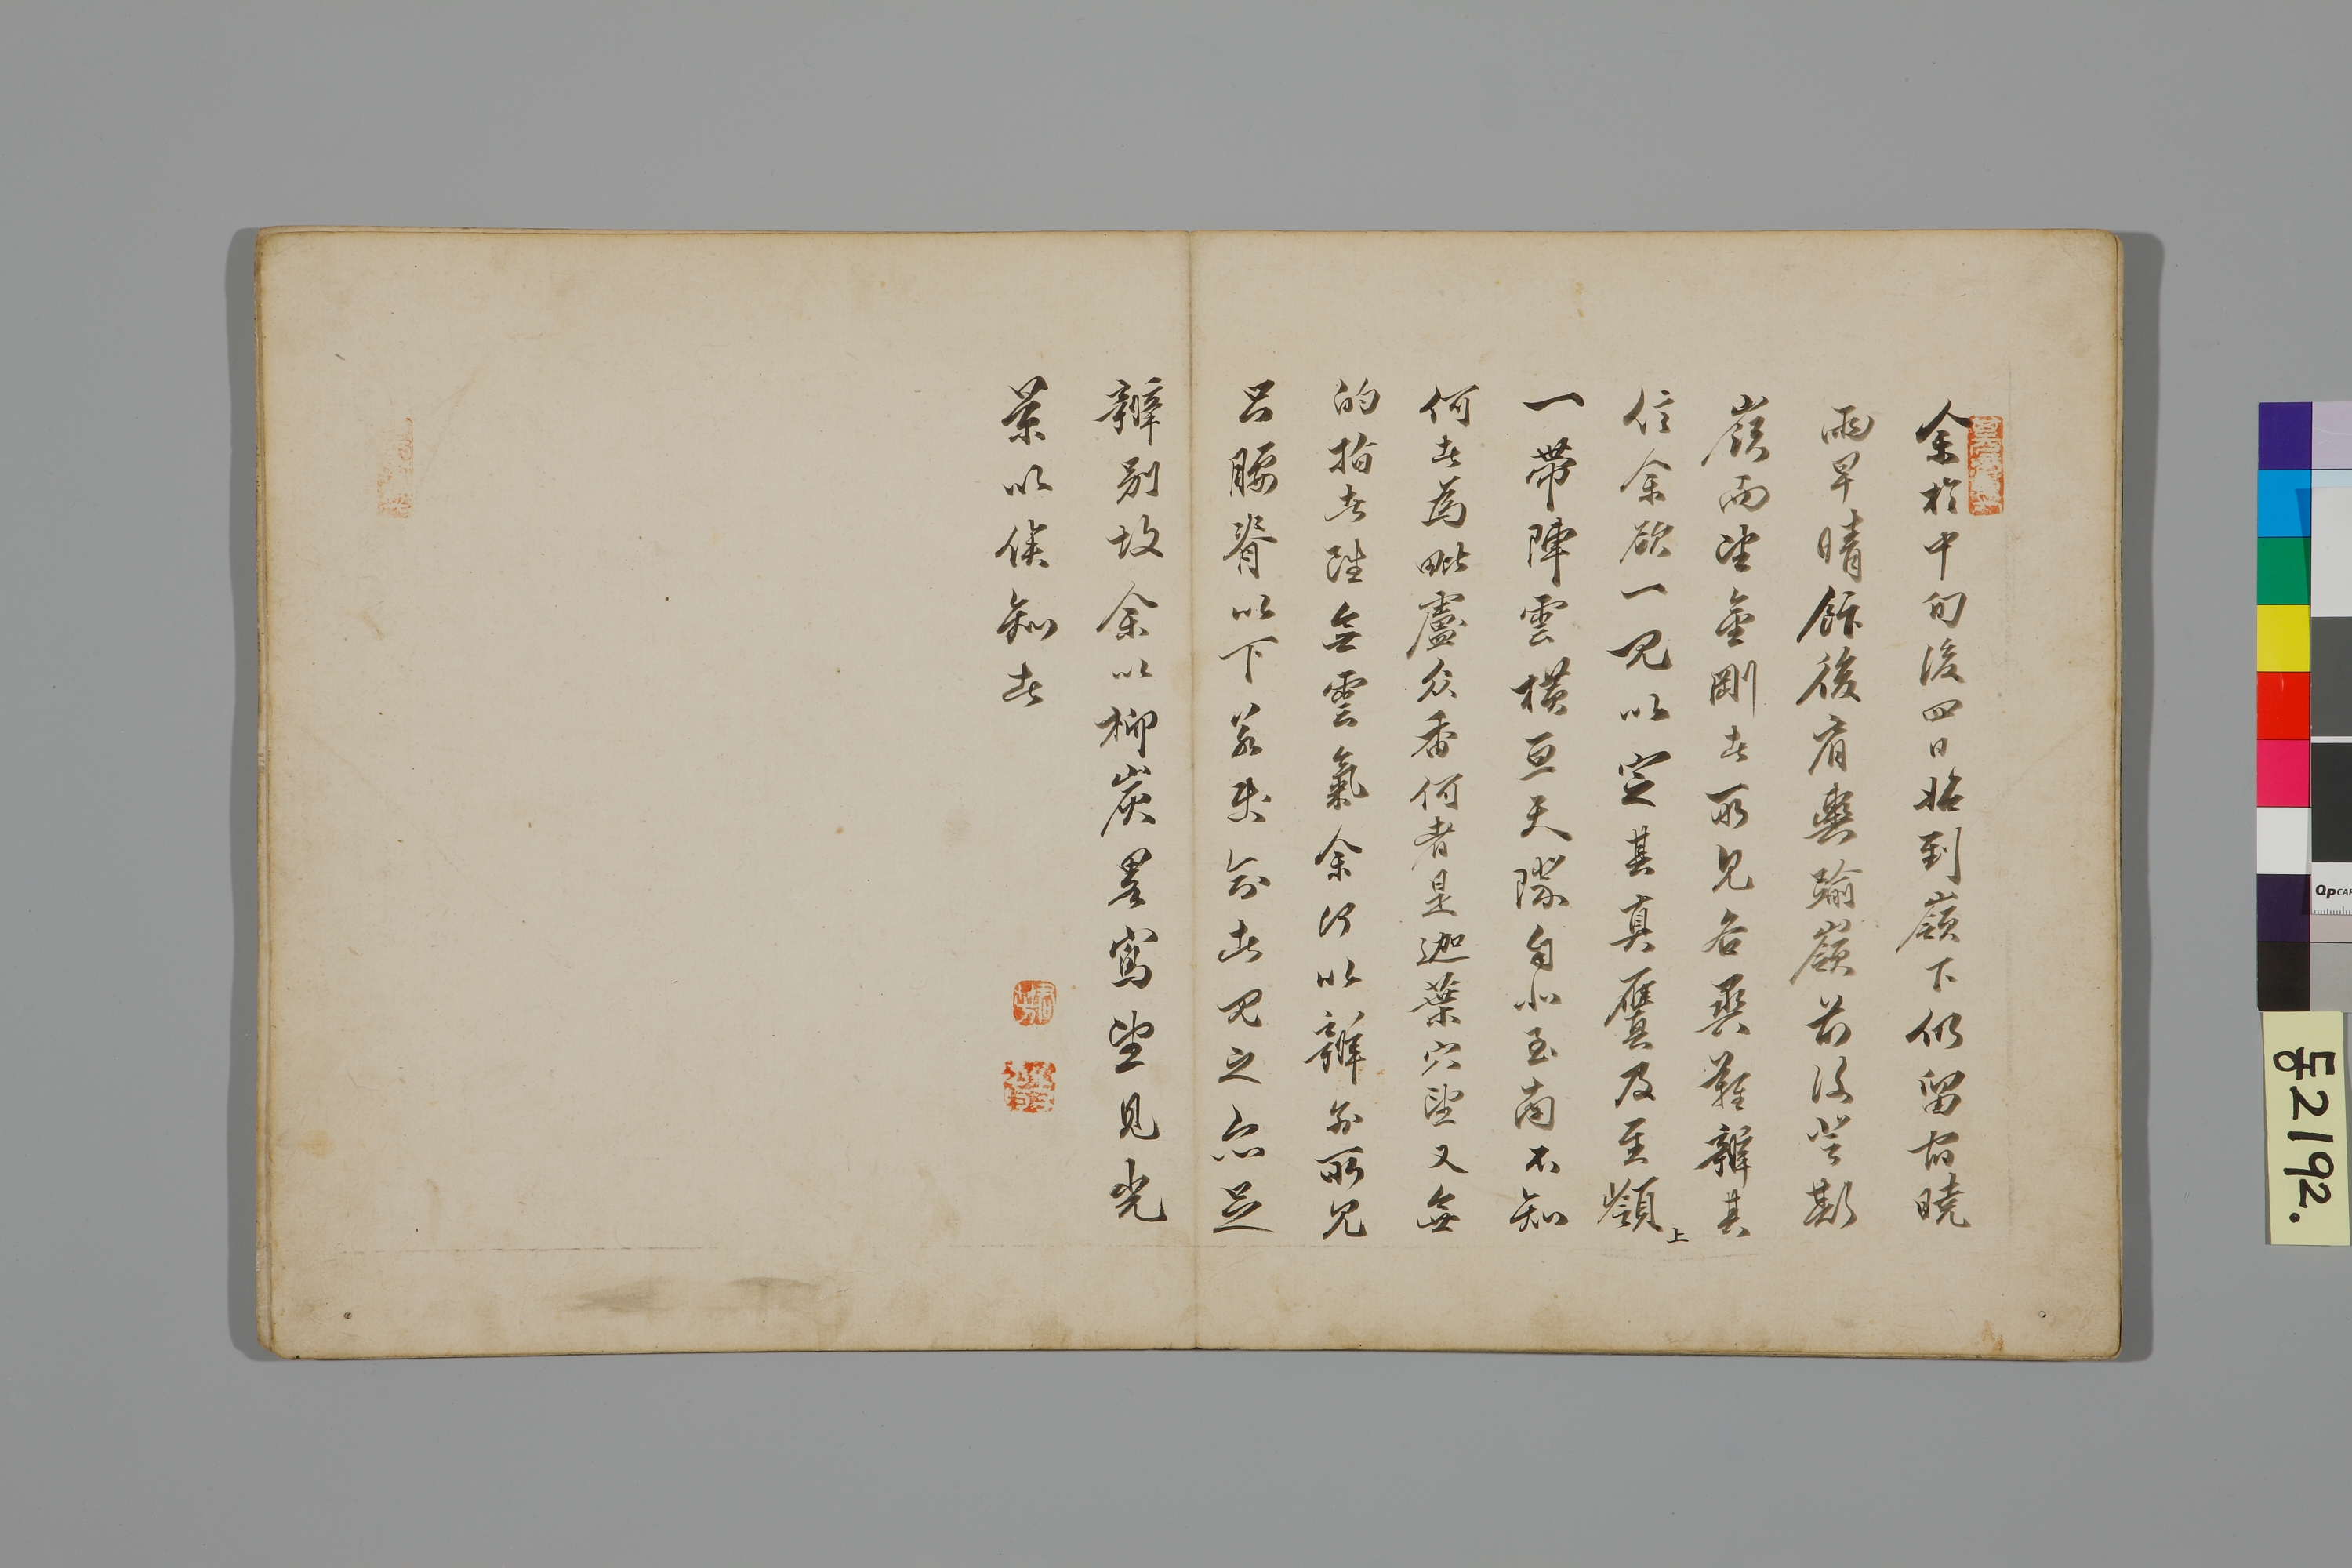 余於中旬後四日始到嶺下仍留宿曉
雨早晴飯後肩輿踰嶺前後登斯
嶺而望金剛者所見各異難辨其
信余欲一見以定其真贋及至嶺上
一帶陣雲橫亘天際自北至南不知
何者爲毗盧衆香何者是迦葉穴望又無
的指者雖無雲氣余何以辨哉所見
只腰脊以下若使命者見之亦足
辨別故余以柳炭畧寫望見光
景以俟知者
동2192.
QpCAR